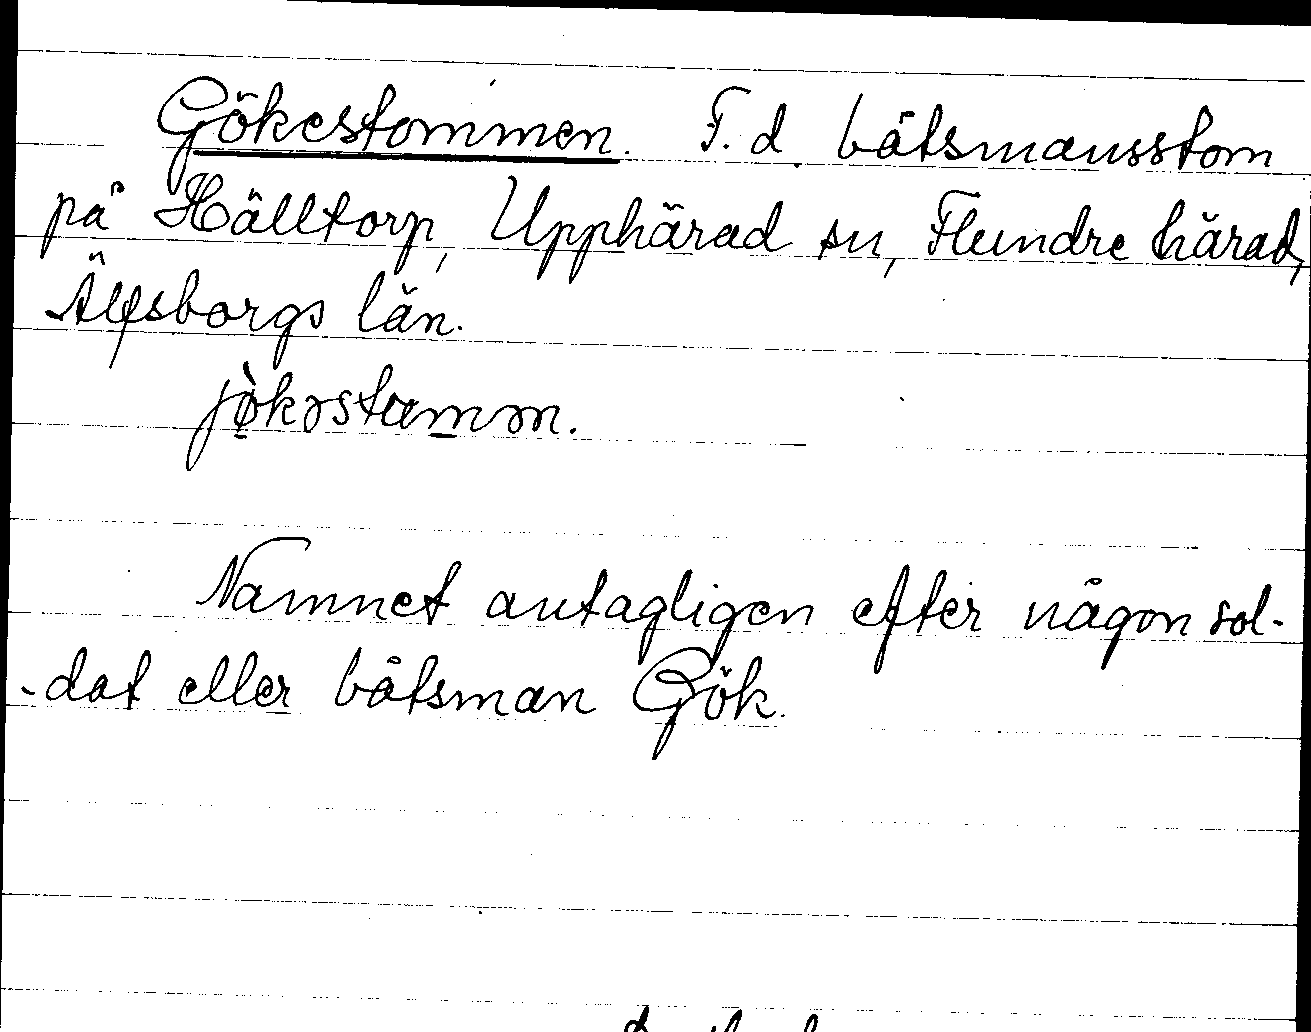 Gökestommen. F. d. båtsmansstom
på Hälltorp, Upphärad sn, Flundre härad,
Älvsborgs län.
jø̀kəstumm.
Namnet antagligen efter någon sol-
-dat eller båtsman Gök.